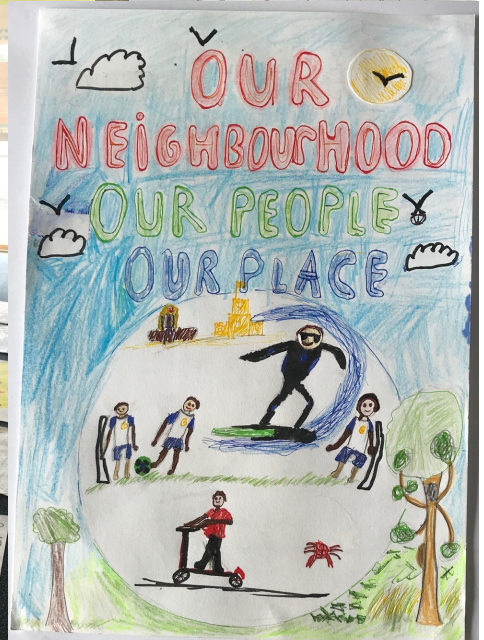 OUR
NEiGHBOUrHOOD
OUR PEOPLE
OUR PLACE